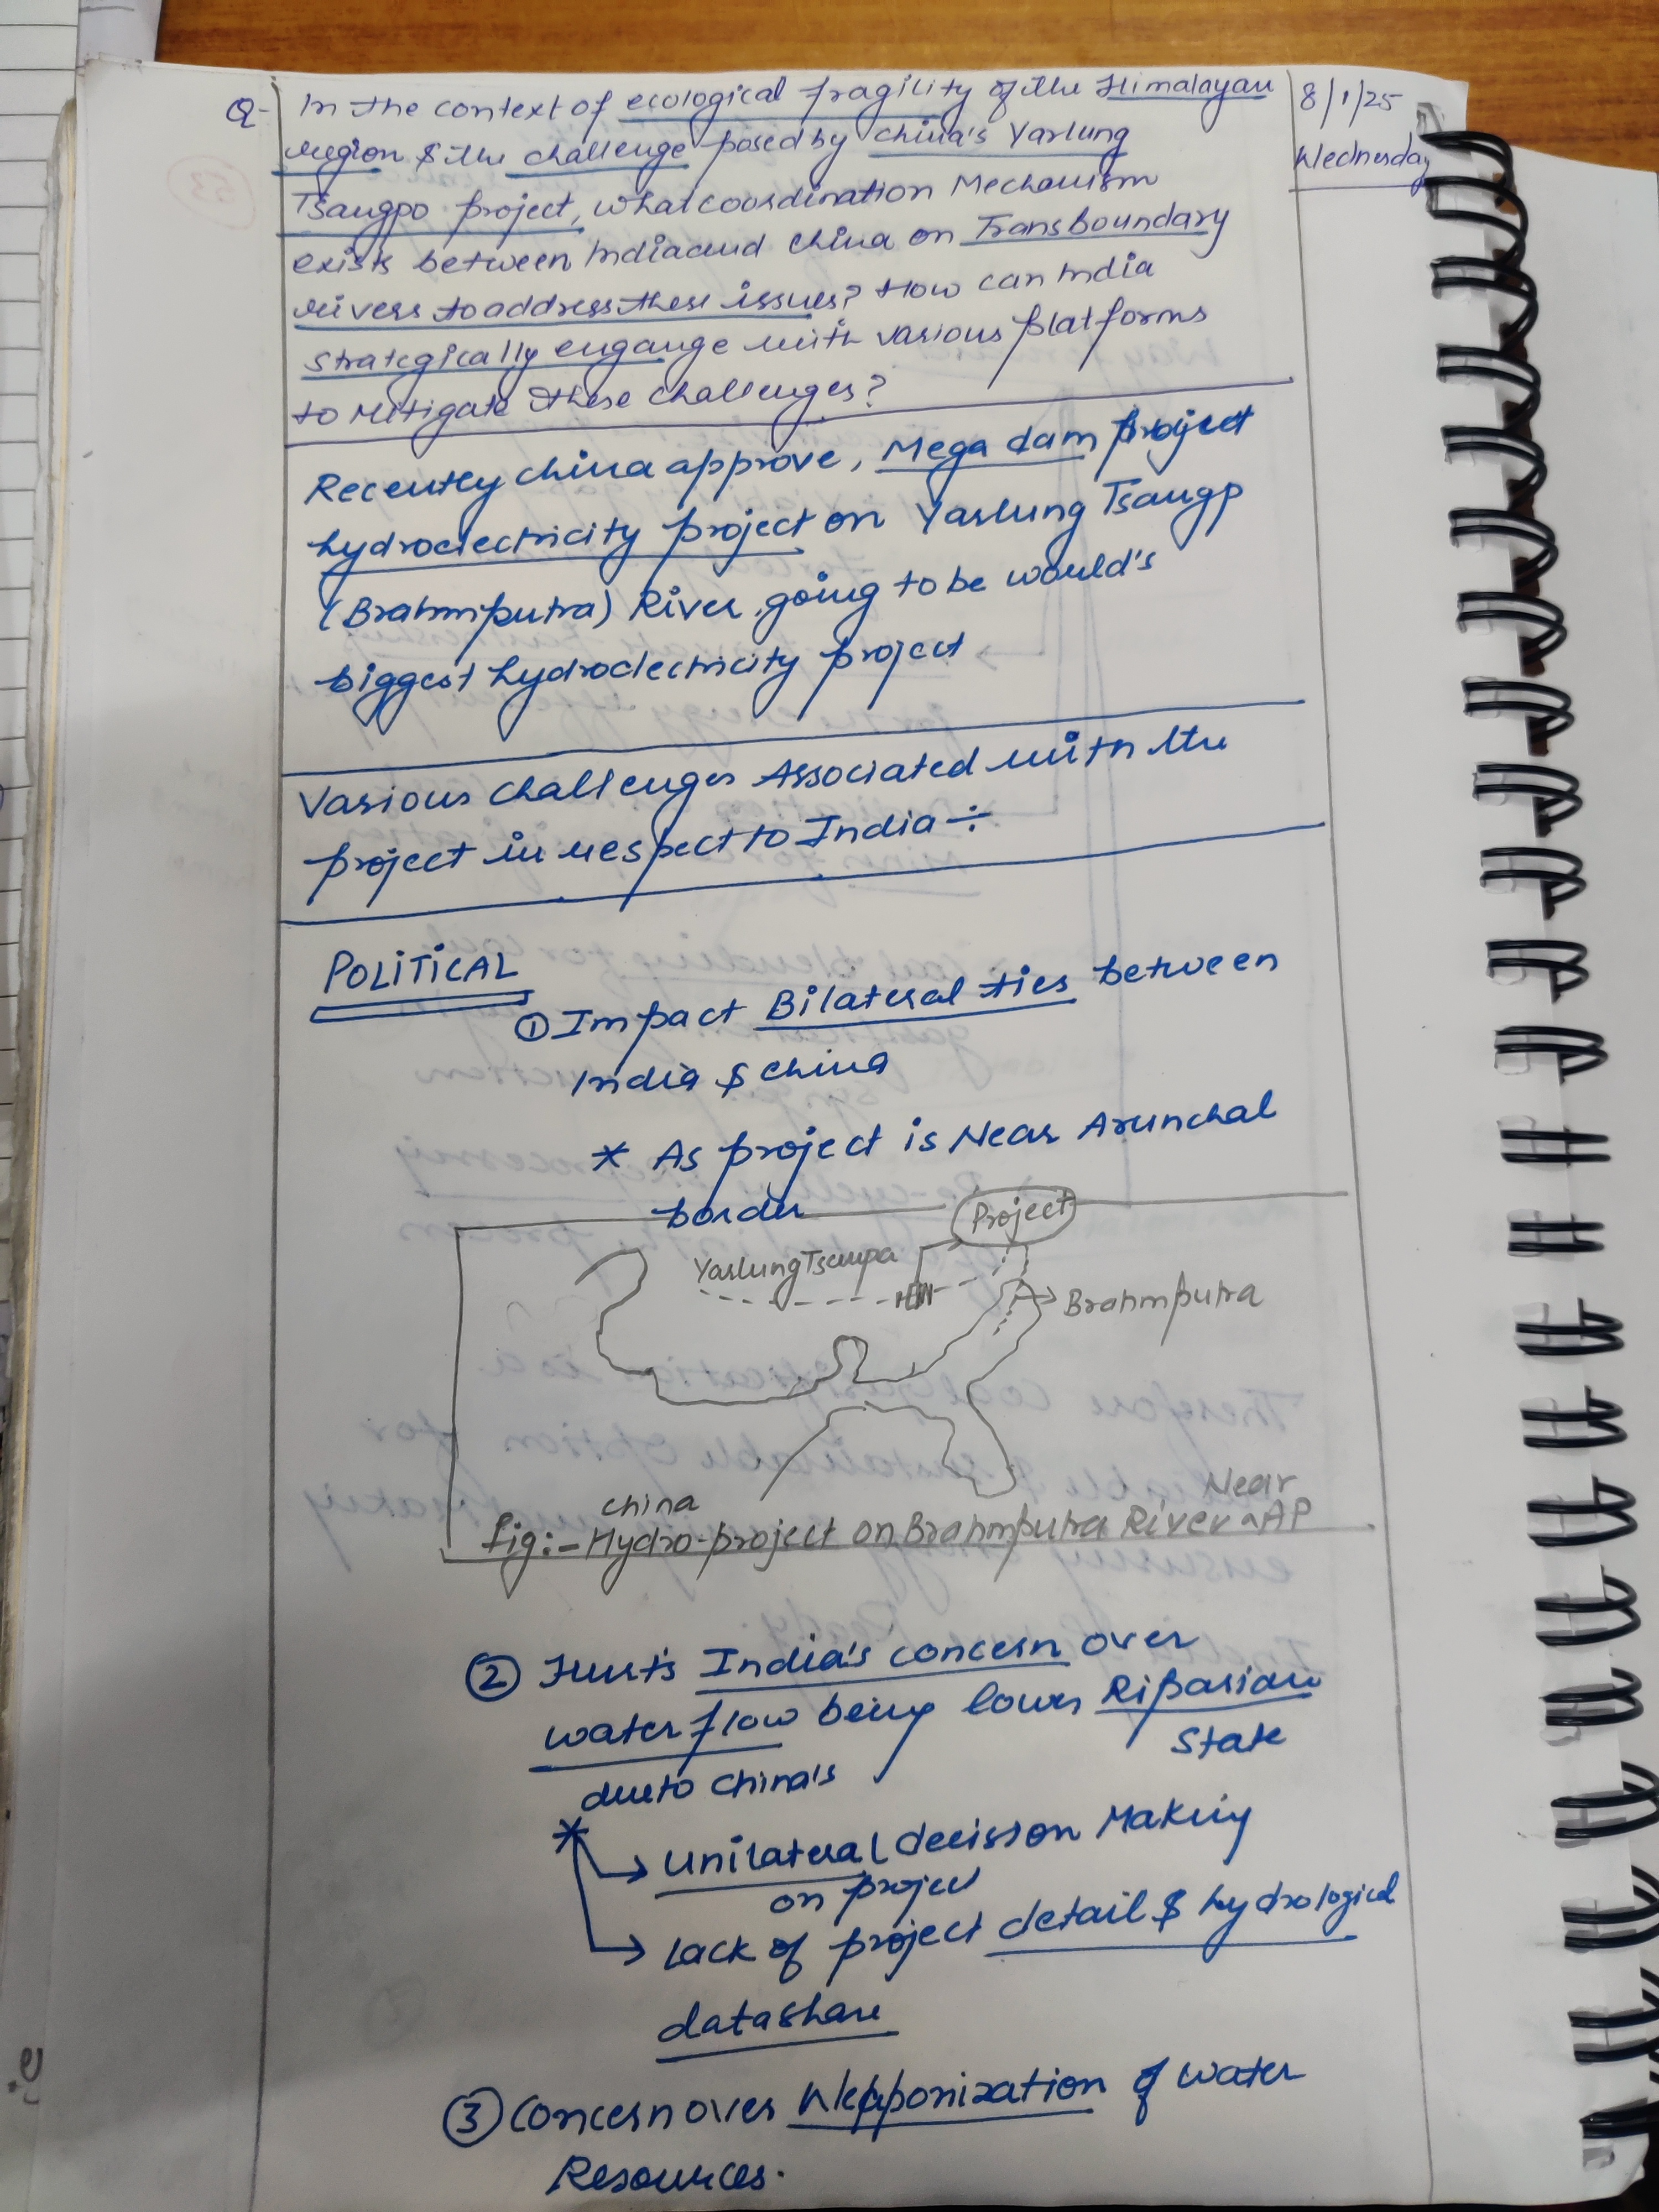 Q- In the context of ecological fragility of the Himalayan
region & the challenge posed by China's Yarlung
Tsangpo project, what coordination Mechanism
exists between India and China on TransBoundary
rivers to address these issues? How can India
strategically engange with various platforms
to Mitigate these challenges?
8/1/25
Wednesday
Recently China approve, Mega dam project
hydroelectricity project on Yarlung Tsangp
(Brahmputra) River, going to be would's
biggest hydroelectricity project
Various challenges Associated with the
project in respect to India ÷
POLITICAL
① Impact Bilateral ties between
India & China
* As project is Near Arunchal
border
Project
Yarlung Tsanpa
Brahmputra
China
Near
fig:- Hydro-project on Brahmputra River ^ AP
② Hurts India's concern over
water flow being lower Riparian
State
due to China's
* → Unilateral decisson Making
on project
→ Lack of project detail & hydrological
data share
③ Concern over Wepponization of water
Resources.